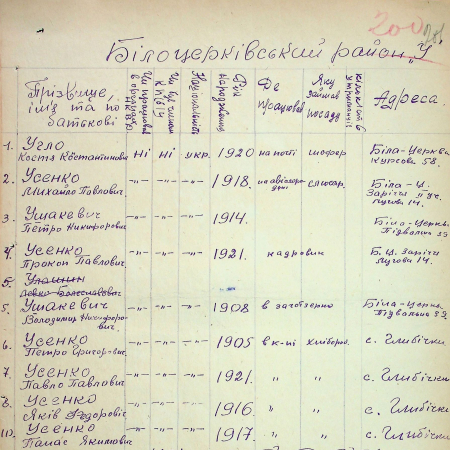 200
Білоцерківський район „У"
Прізвище, ім'я та по батькові
Чи працював в органах НКВД
Чи був членом КП(б)У
Національність
Рік народження
Де працював
Яку займав посаду
Адреса.
1. Угло Костя Костантинович ні ні укр. 1920 на пості шофер Біла-Церква Курсова 58.
2. Усенко Михайло Павлович -"- -"- -"- 1918. слюсар. Біла-Ц. Заріччя Лугова 14.
3. Ушакевич Петро Никифорович -"- -"- -"- 1914. Біла-Церква Підвальна
4. Усенко Прокоп Павлович -"- -"- -"- 1921. кадровик Б.Ц. Заріччя Лугова 14.
5.
5. Ушакевич Володимир Никифорович. -"- -"- -"- 1908 в заготзерно Біла-Церква Підвальна
6. Усенко Петро Григорович. -"- -"- -"- 1905 в к-пі хлібороб. с. Глибічка
7. Усенко Павло Павлович -"- -"- -"- 1921. " " с. Глибічка
8. Усенко Яків Федорович -"- -"- -"- 1916. " " с. Глибічка
10. Усенко Панас Якимович -"- -"- -"- 1917. " " с. Глибічка